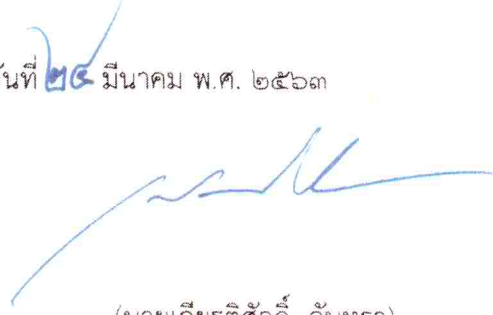 วันที่ ๒๔ มีนาคม พ.ศ. ๒๕๖๓
(นายเกียรติศักดิ์ จันทรา)